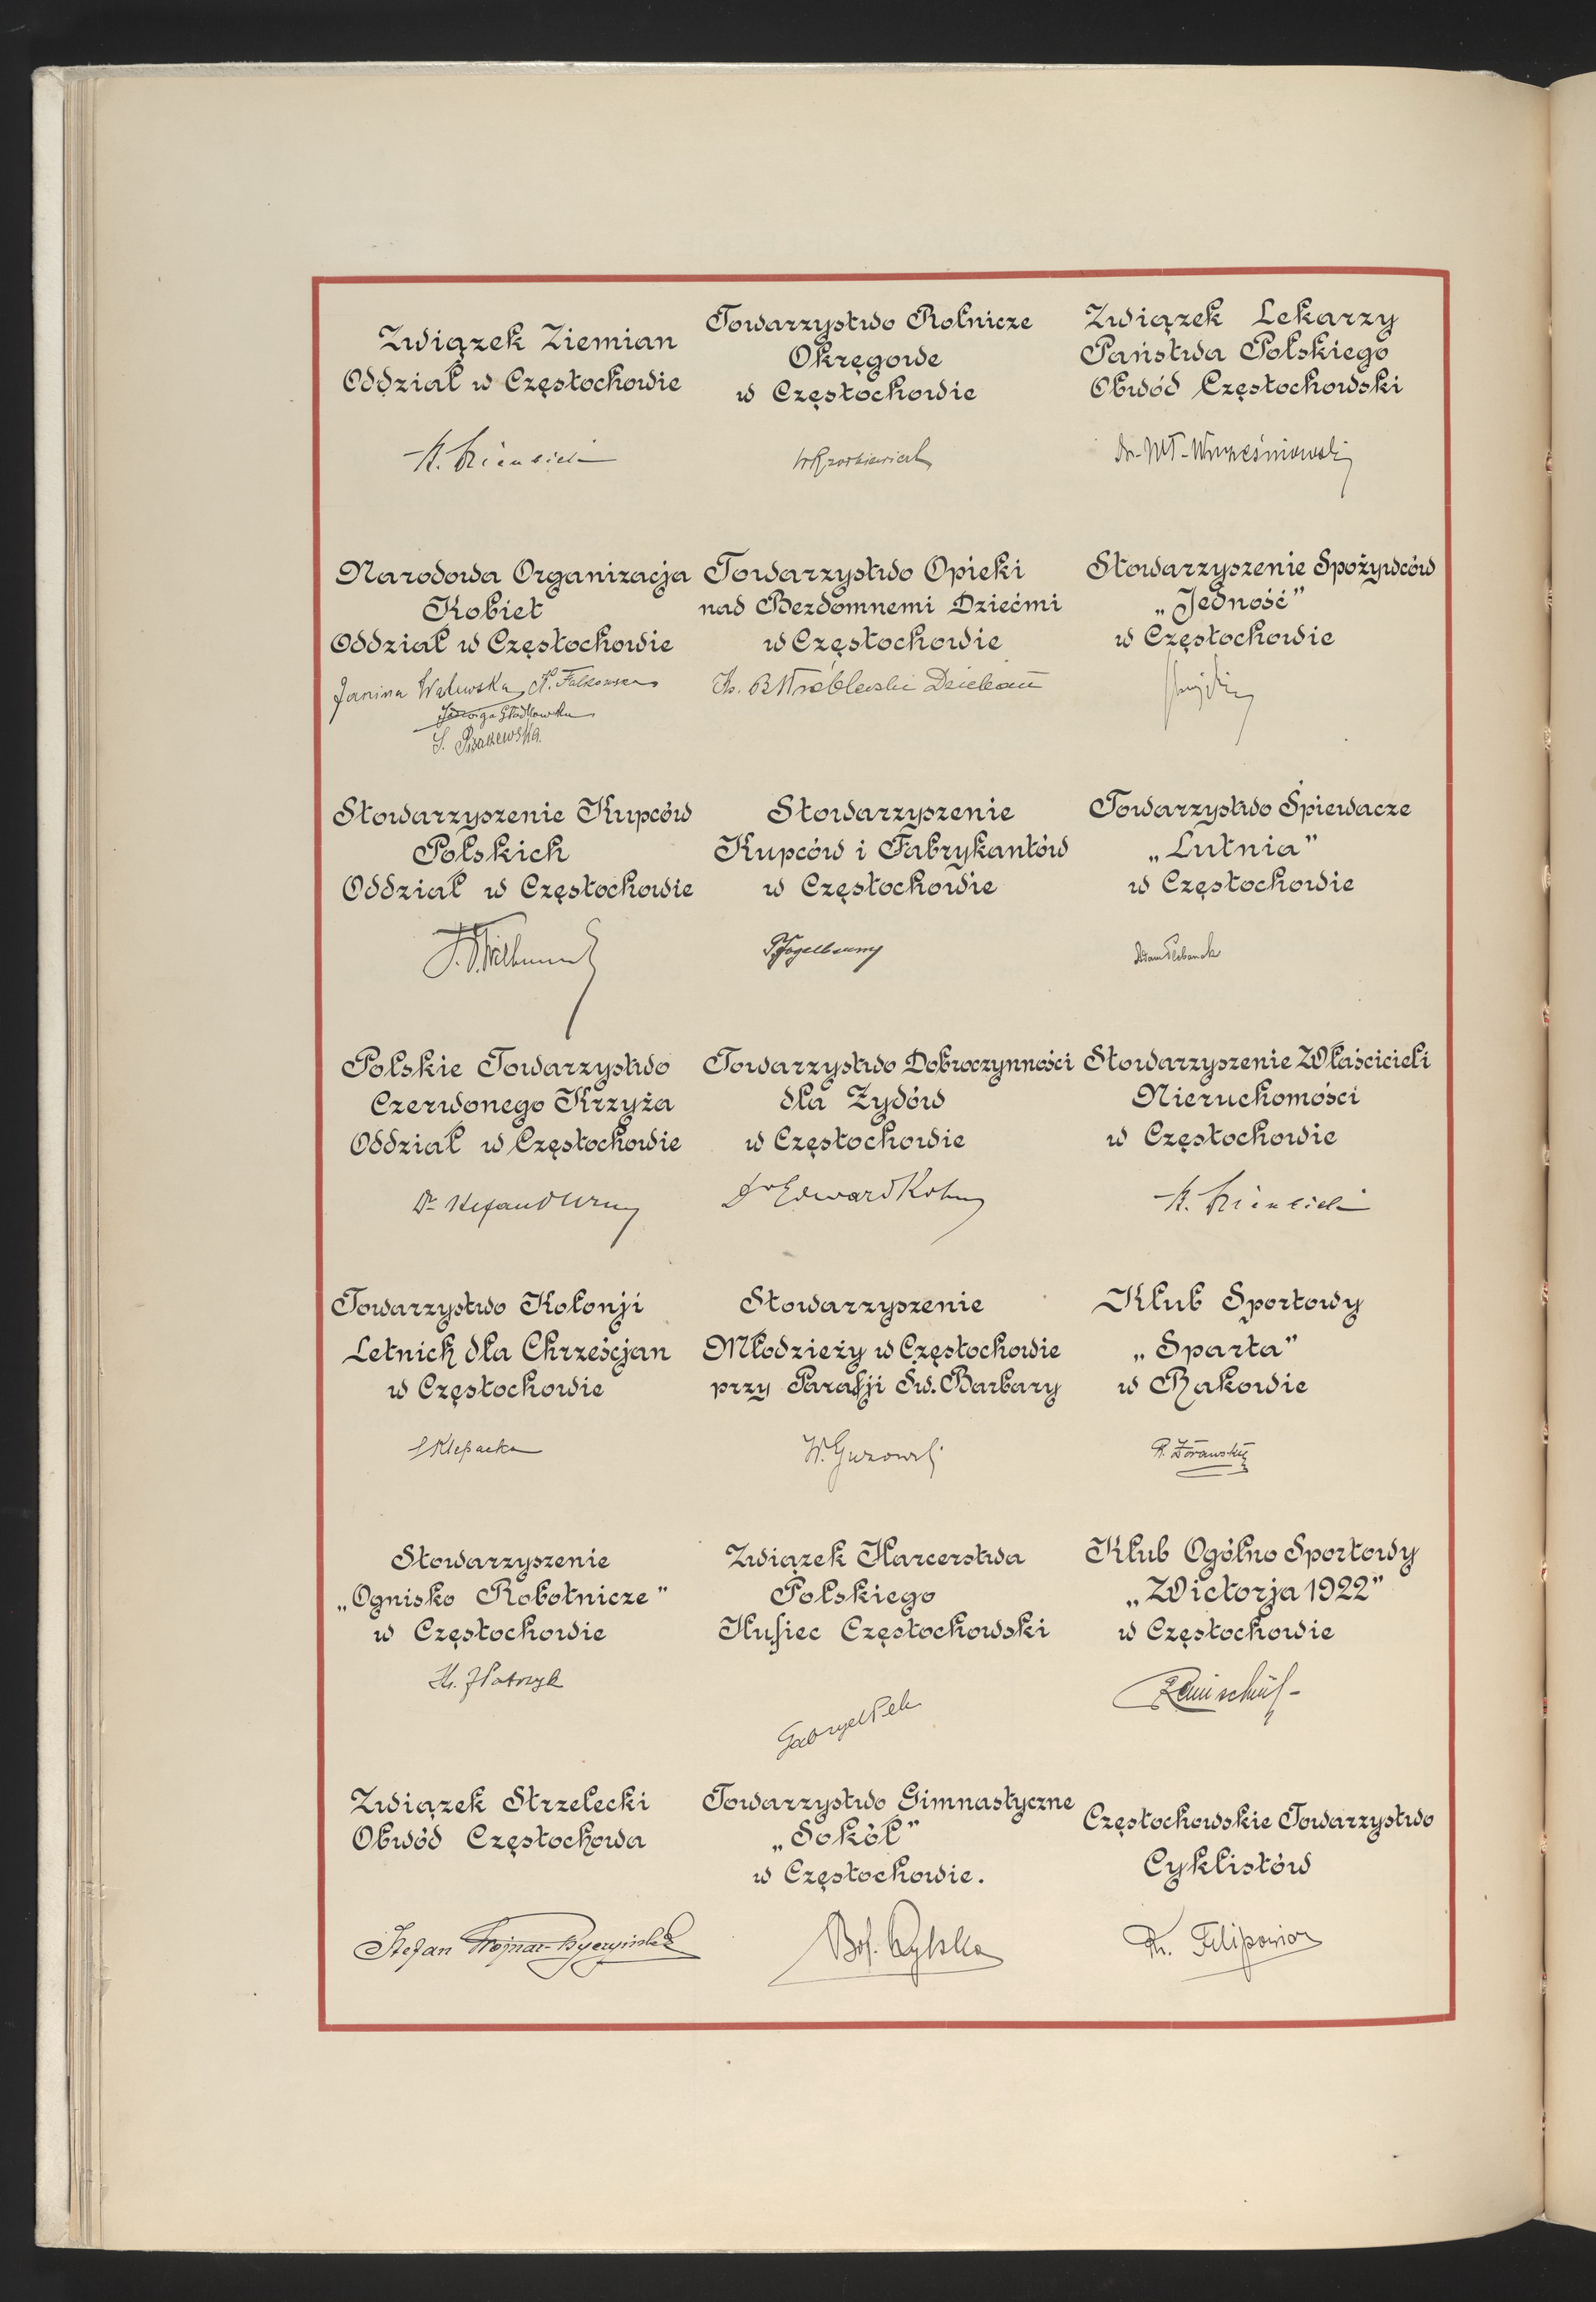 Związek Ziemian
Oddział w Częstochowie
Towarzystwo Rolnicze
Okręgowe
w Częstochowie
Związek Lekarzy
Państwa Polskiego
Obwód Częstochowski
Dr. Wł. Wrześniowski
Narodowa Organizacja
Kobiet
Oddział w Częstochowie
Janina Walewska, K. Falkowska
Jadwiga Gładkowska
S.
Towarzystwo Opieki
nad Bezdomnemi Dziećmi
w Częstochowie
Ks. B Wróblewski Dziekan
Stowarzyszenie Spożywców
„Jedność”
w Częstochowie
Stowarzyszenie Kupców
Polskich
Oddział w Częstochowie
Stowarzyszenie
Kupców i Fabrykantów
w Częstochowie
Towarzystwo Śpiewacze
„Lutnia”
w Częstochowie
Adam Plebanek
Polskie Towarzystwo
Czerwonego Krzyża
Oddział w Częstochowie
Dr Stefan
Towarzystwo Dobroczynności
dla Żydów
w Częstochowie
Dr Edward Kohn
Stowarzyszenie Właścicieli
Nieruchomości
w Częstochowie
Towarzystwo Kolonji
Letnich dla Chrześcjan
w Częstochowie
S Klepacka
Stowarzyszenie
Młodzieży w Częstochowie
przy Parafji Św. Barbary
W. Gurowski
Klub Sportowy
„Sparta”
w Rakowie
R. Żórawski
Stowarzyszenie
„Ognisko Robotnicze”
w Częstochowie
Związek Harcerstwa
Polskiego
Hufiec Częstochowski
Gabryel Pel
Klub Ogólno Sportowy
„Wictorja 1922”
w Częstochowie
Związek Strzelecki
Obwód Częstochowa
Stefan Wojnar-Byczyński
Towarzystwo Gimnastyczne
„Sokół”
w Częstochowie.
Częstochowskie Towarzystwo
Cyklistów
Filipowicz